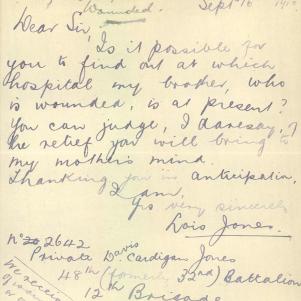 Wounded.
Sept 16
Dear Sir,
Is it possible for
you to find out at which
hospital my brother, who
is wounded, is at present?
You can judge, I daresay,
the relief you will bring to
my mother's mind.
Thanking you in anticipation,
I am,
Yrs very sincerely
Lois Jones.
No 2642
Private Davis
Cardigan Jones
48th (formerly 32nd) Battalion
12th Brigade
We receive